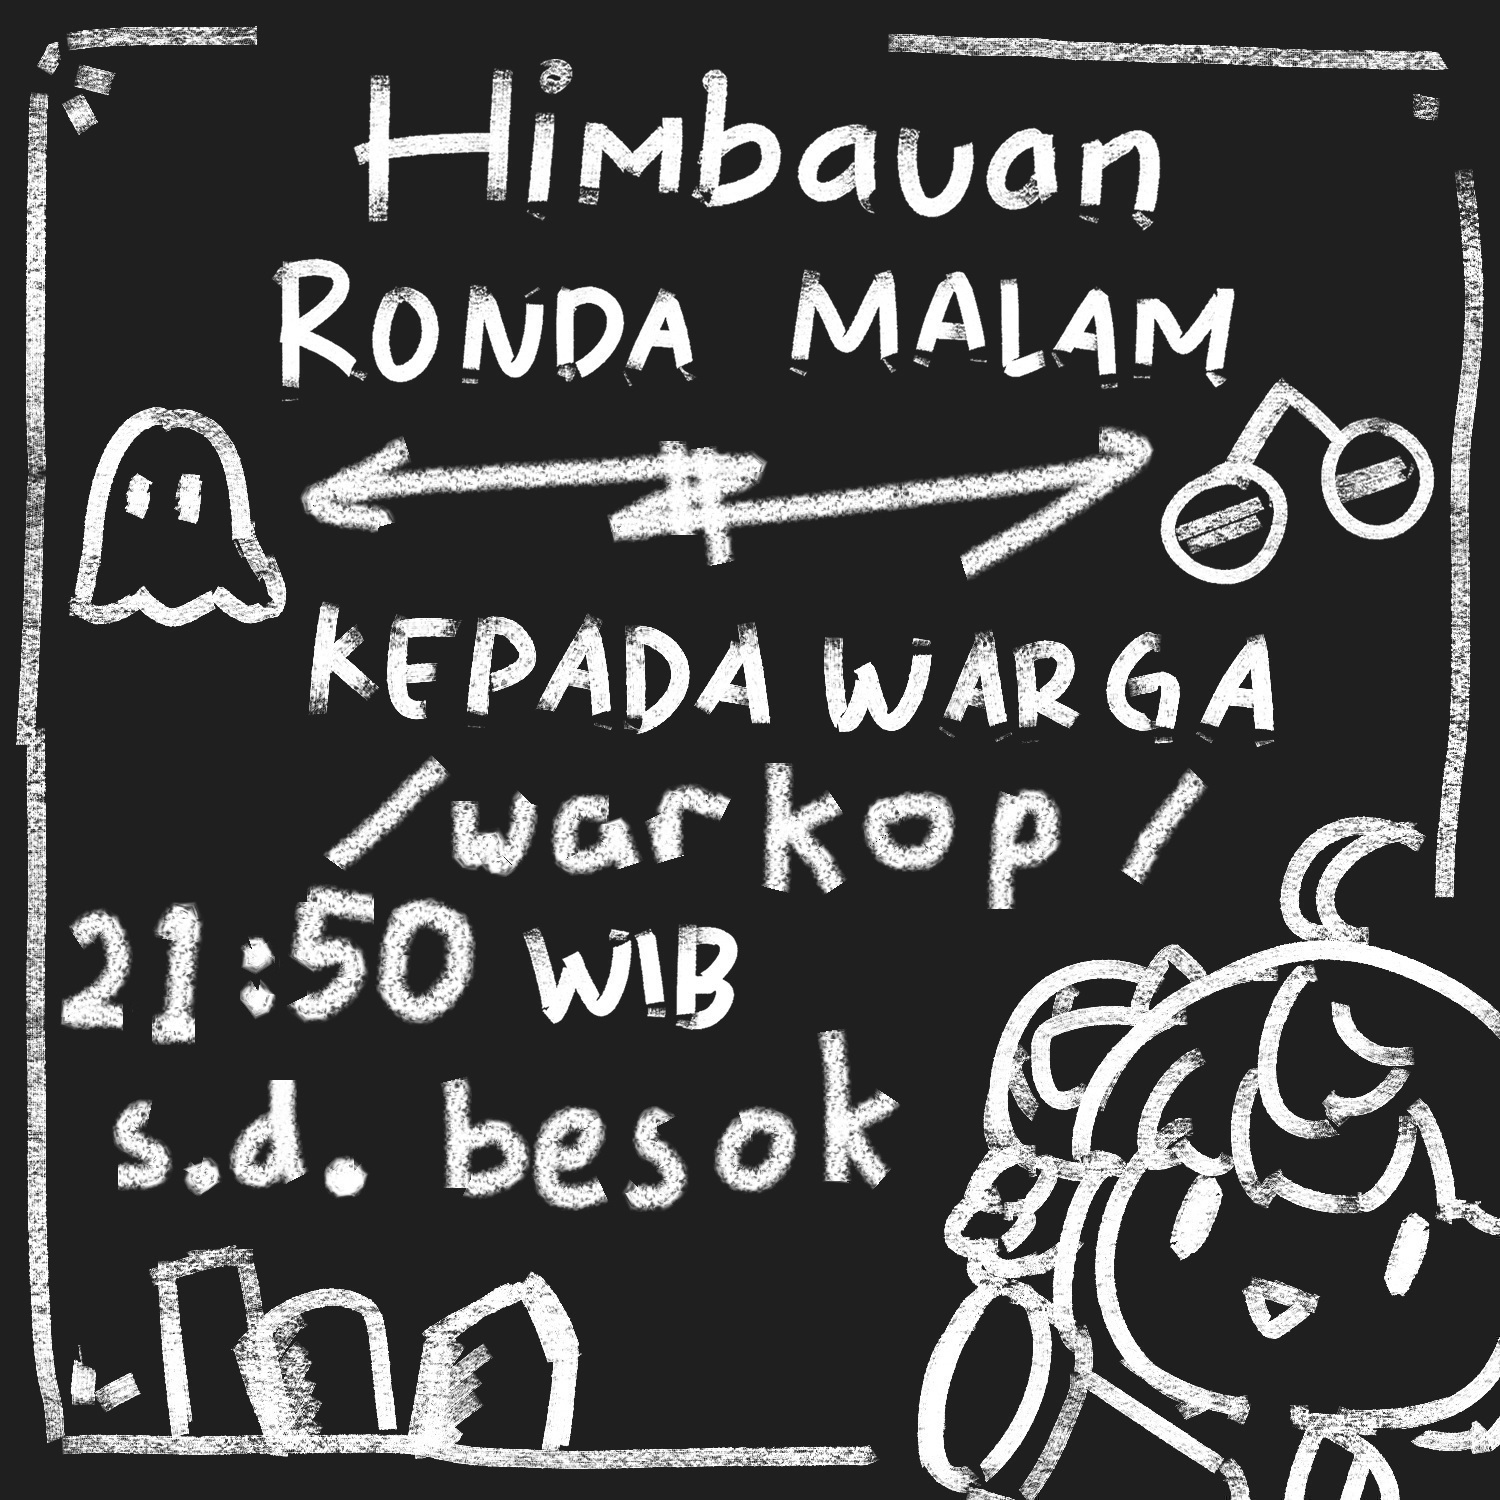 Himbauan
RONDA MALAM
KEPADA WARGA
/warkop/
21:50 WIB
s.d. besok